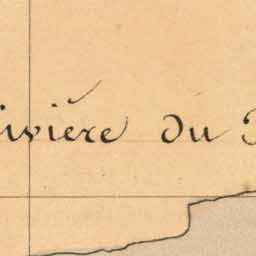 ivière du